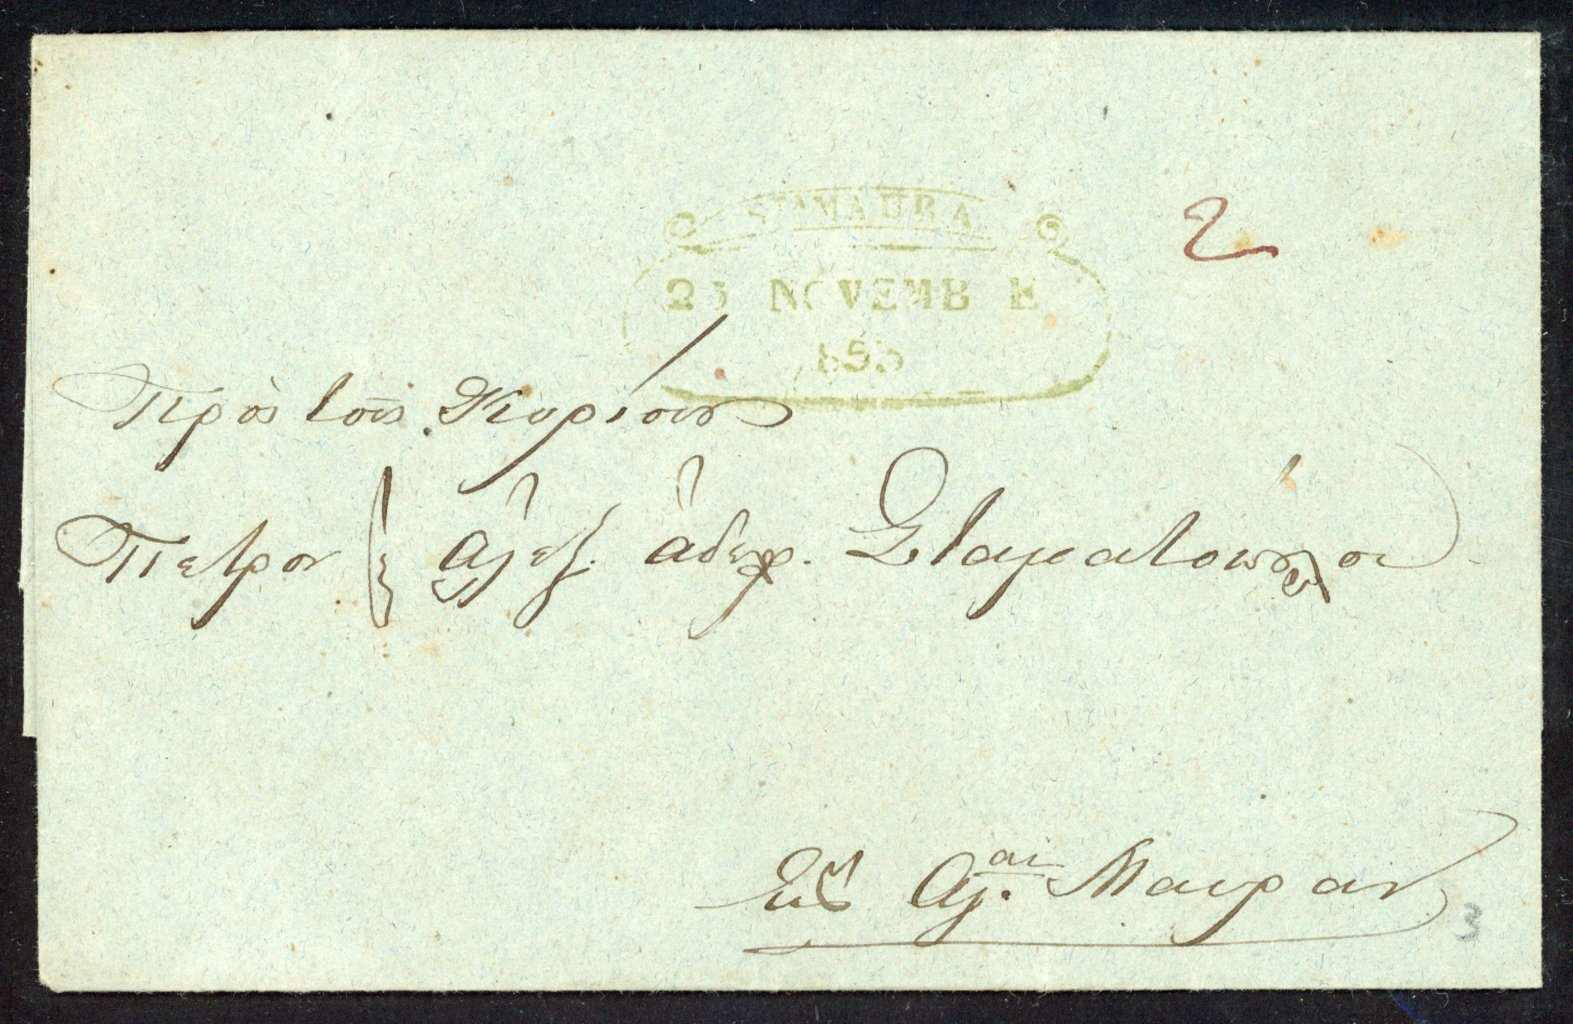 STA MAURA
2
25 NOVEMB E
Πρὸς τοὺς Κυρίους
Πέτρον Ἀλεξ. ἀδελφ. Σταματόπουλοι
Εἰς Ἁγ.αν Μαύραν
3